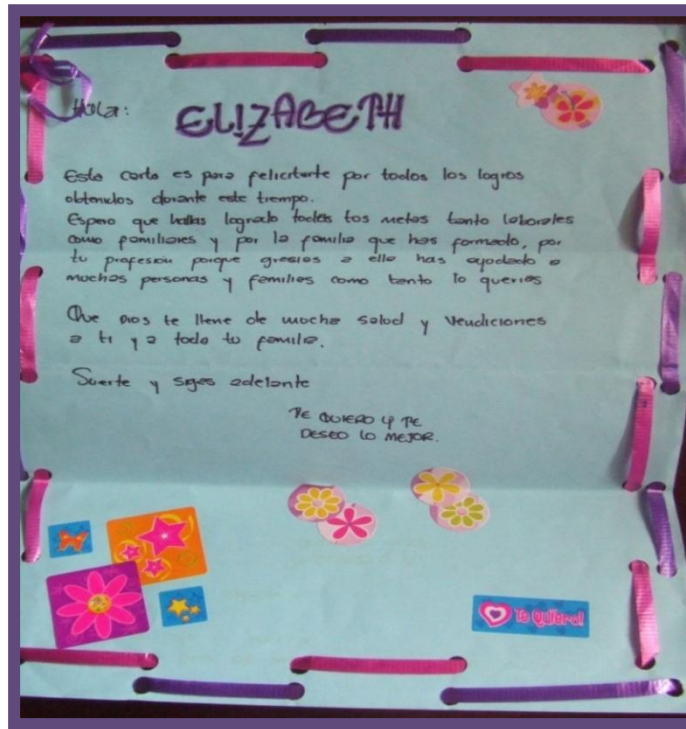 Hola: ELIZABETH
Esta carta es para felicitarte por todos los logros
obtenidos durante este tiempo.
Espero que hallas logrado todas tus metas tanto laborales
como familiares y por la familia que has formado, por
tu profesion porque gracias a ella has ayudado a
muchas personas y familias como tanto lo querias
Que Dios te llene de mucha salud y Vendiciones
a ti y a toda tu familia.
Suerte y sigas adelante
TE QUIERO Y TE
DESEO LO MEJOR.
Te Quiero!